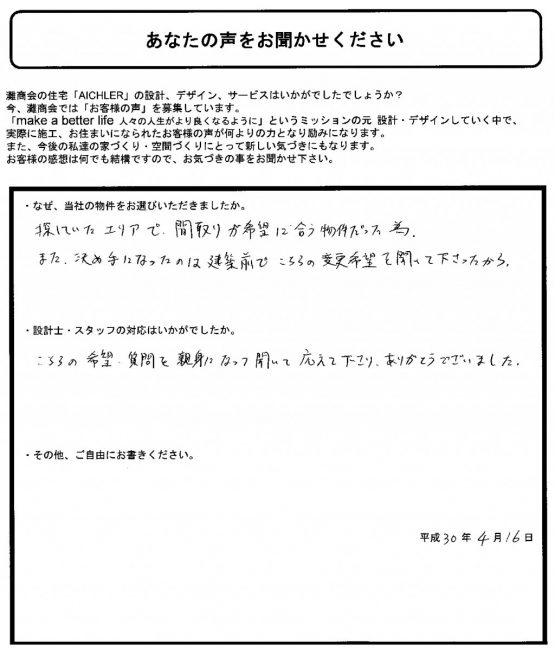 あなたの声をお聞かせください
灘商会の住宅「AICHLER」の設計、デザイン、サービスはいかがでしたでしょうか？
今、灘商会では「お客様の声」を募集しています。
「make a better life 人々の人生がより良くなるように」というミッションの元 設計・デザインしていく中で、
実際に施工、お住まいになられたお客様の声が何よりの力となり励みになります。
また、今後の私達の家づくり・空間づくりにとって新しい気づきにもなります。
お客様の感想は何でも結構ですので、お気づきの事をお聞かせ下さい。
・なぜ、当社の物件をお選びいただきましたか。
探していたエリアで、間取りが希望に合う物件だった為.
また、決め手になったのは建築前でこちらの変更希望を聞いて下さったから.
・設計士・スタッフの対応はいかがでしたか。
こちらの希望・質問を親身になって聞いて応えて下さり、ありがとうございました.
・その他、ご自由にお書きください。
平成30年4月16日